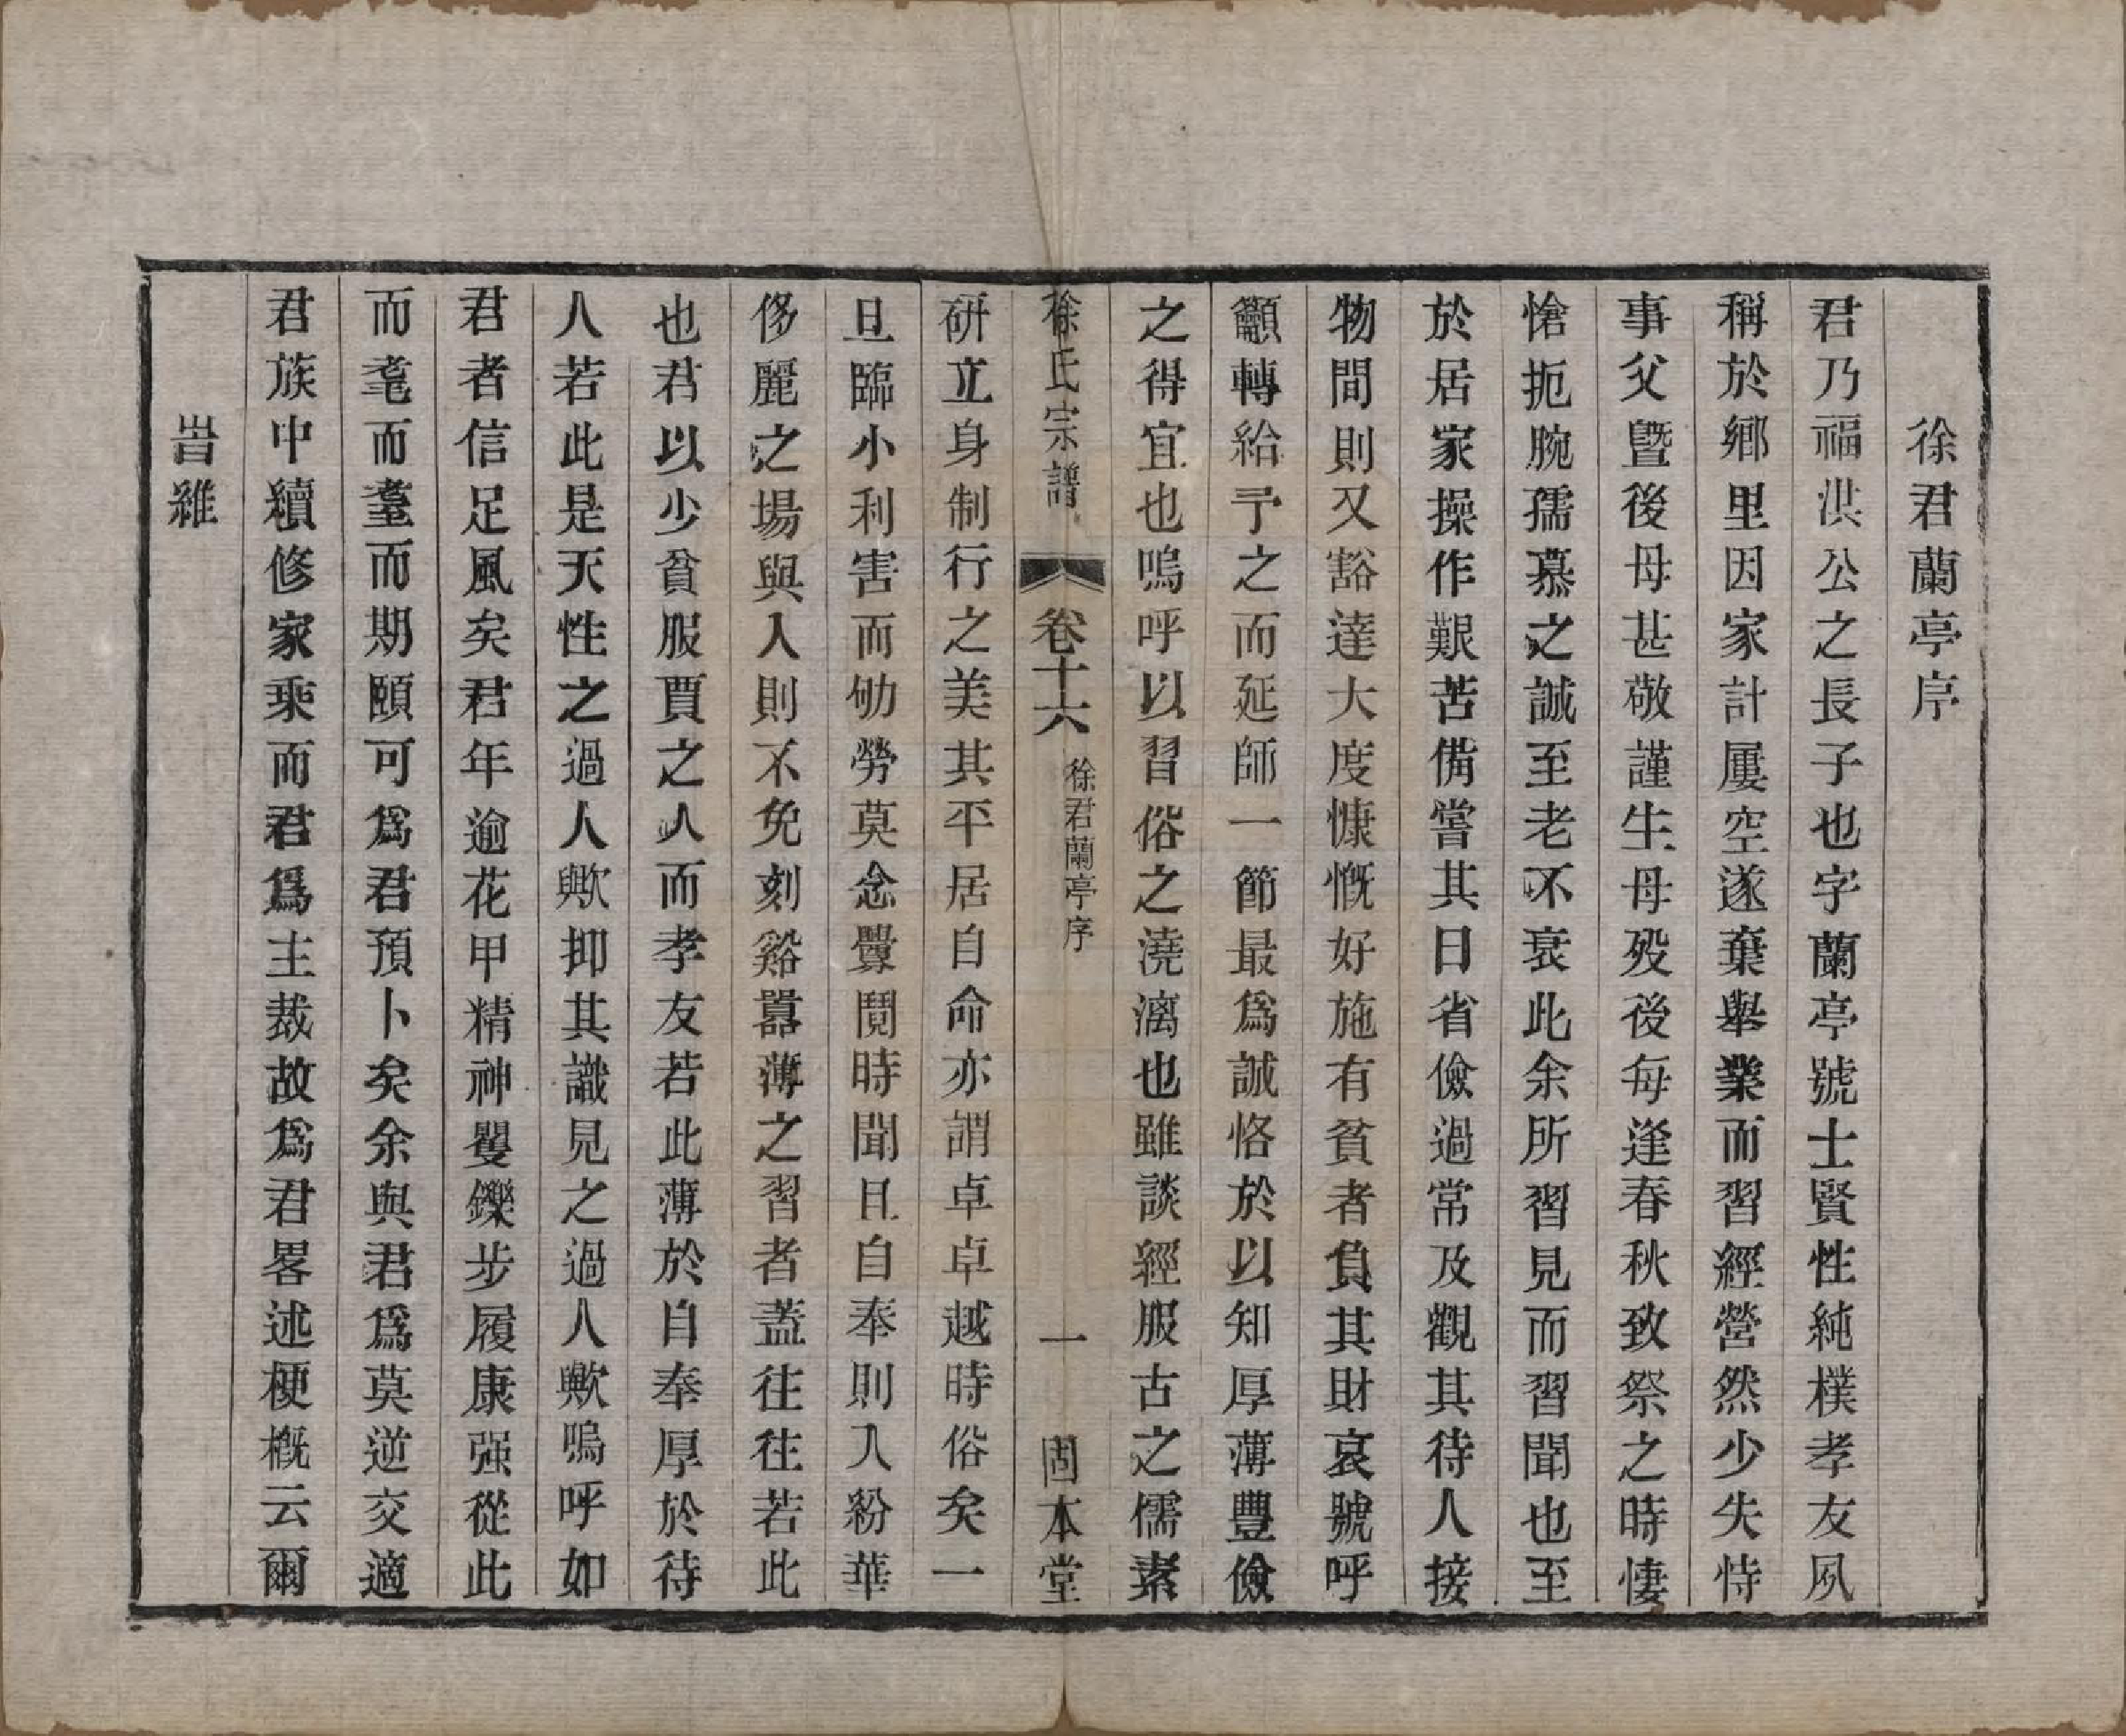 徐君蘭亭序
君乃福洪公之長子也字蘭亭號士賢性純樸孝友夙
稱於鄉里因家計屢空遂棄舉業而習經營然少失恃
事父曁後母甚敬謹生母歿後每逢春秋致祭之時悽
愴扼腕孺慕之誠至老不衰此余所習見而習聞也至
於居家操作艱苦備嘗其日省儉過常及觀其待人接
物間則又豁達大度慷慨好施有貧者負其財哀號呼
籲轉給予之而延師一節最爲誠恪於以知厚薄豐儉
之得宜也嗚呼以習俗之澆漓也雖談經服古之儒素
徐氏宗譜
卷十六
徐君蘭亭序
一
固本堂
研立身制行之美其平居自命亦謂卓卓越時俗矣一
旦臨小利害而劬勞莫念釁鬩時聞且自奉則入紛華
侈麗之場與人則不免刻谿囂薄之習者蓋往往若此
也君以少貧服賈之人而孝友若此薄於自奉厚於待
人若此是天性之過人歟抑其識見之過人歟嗚呼如
君者信足風矣君年逾花甲精神矍鑠步履康强從此
而耄而耋而期頤可爲君預卜矣余與君爲莫逆交適
君族中續修家乘而君爲主裁故爲君畧述梗概云爾
旹維